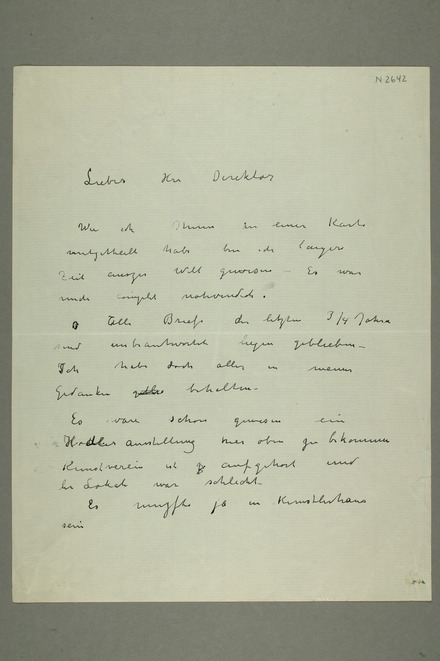 N 2642
Lieber Herr Direktor
Wie ich Ihnen in einer Karte
mitgetheilt habe bin ich längere
Zeit ausser Welt gewesen – Es war
mir notwendich.
Alle Briefe der letzten 3/4 Jahre
sind unbeantwortet liegen geblieben –
Ich habe doch alles in meine
Gedanken behalten –
Es wäre schön gewesen ein
Hodler ausstellung hier oben zu bekommen
Kunstverein ist aufgehört und
Lokal war schlecht
Es müsste ja in Kunstlerhaus
sein